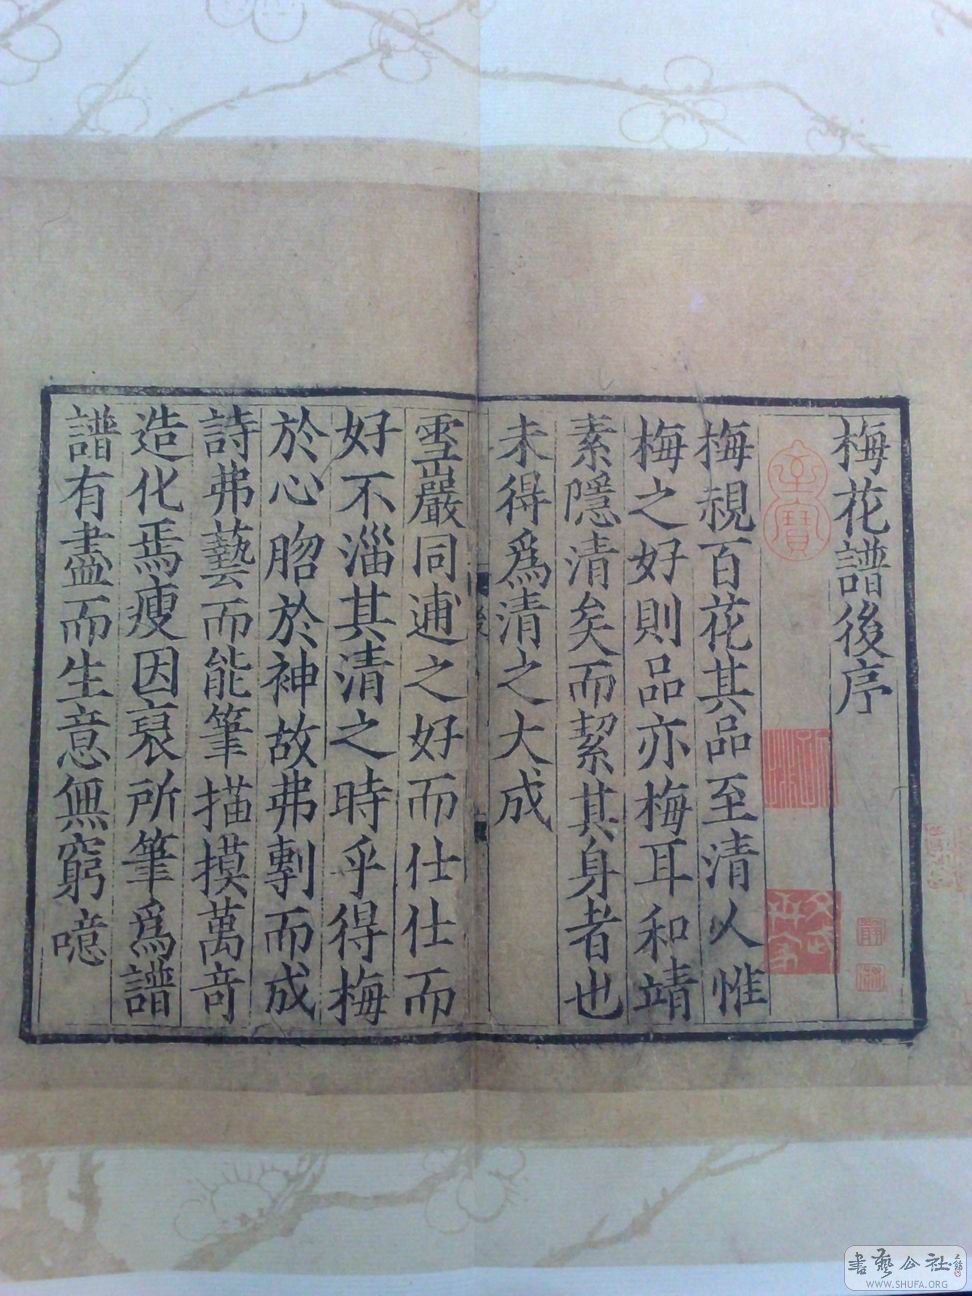 梅花譜後序
梅視百花其品至清人惟
梅之好則品亦梅耳和靖
素隱清矣而絜其身者也
未得爲清之大成
雪巖同逋之好而仕仕而
好不淄其清之時乎得梅
於心胳於神故弗剸而成
詩弗藝而能筆描摸萬竒
造化焉瘦因裒所筆爲譜
譜有盡而生意無窮噫
後
書藝公社
WWW.SHUFA.ORG